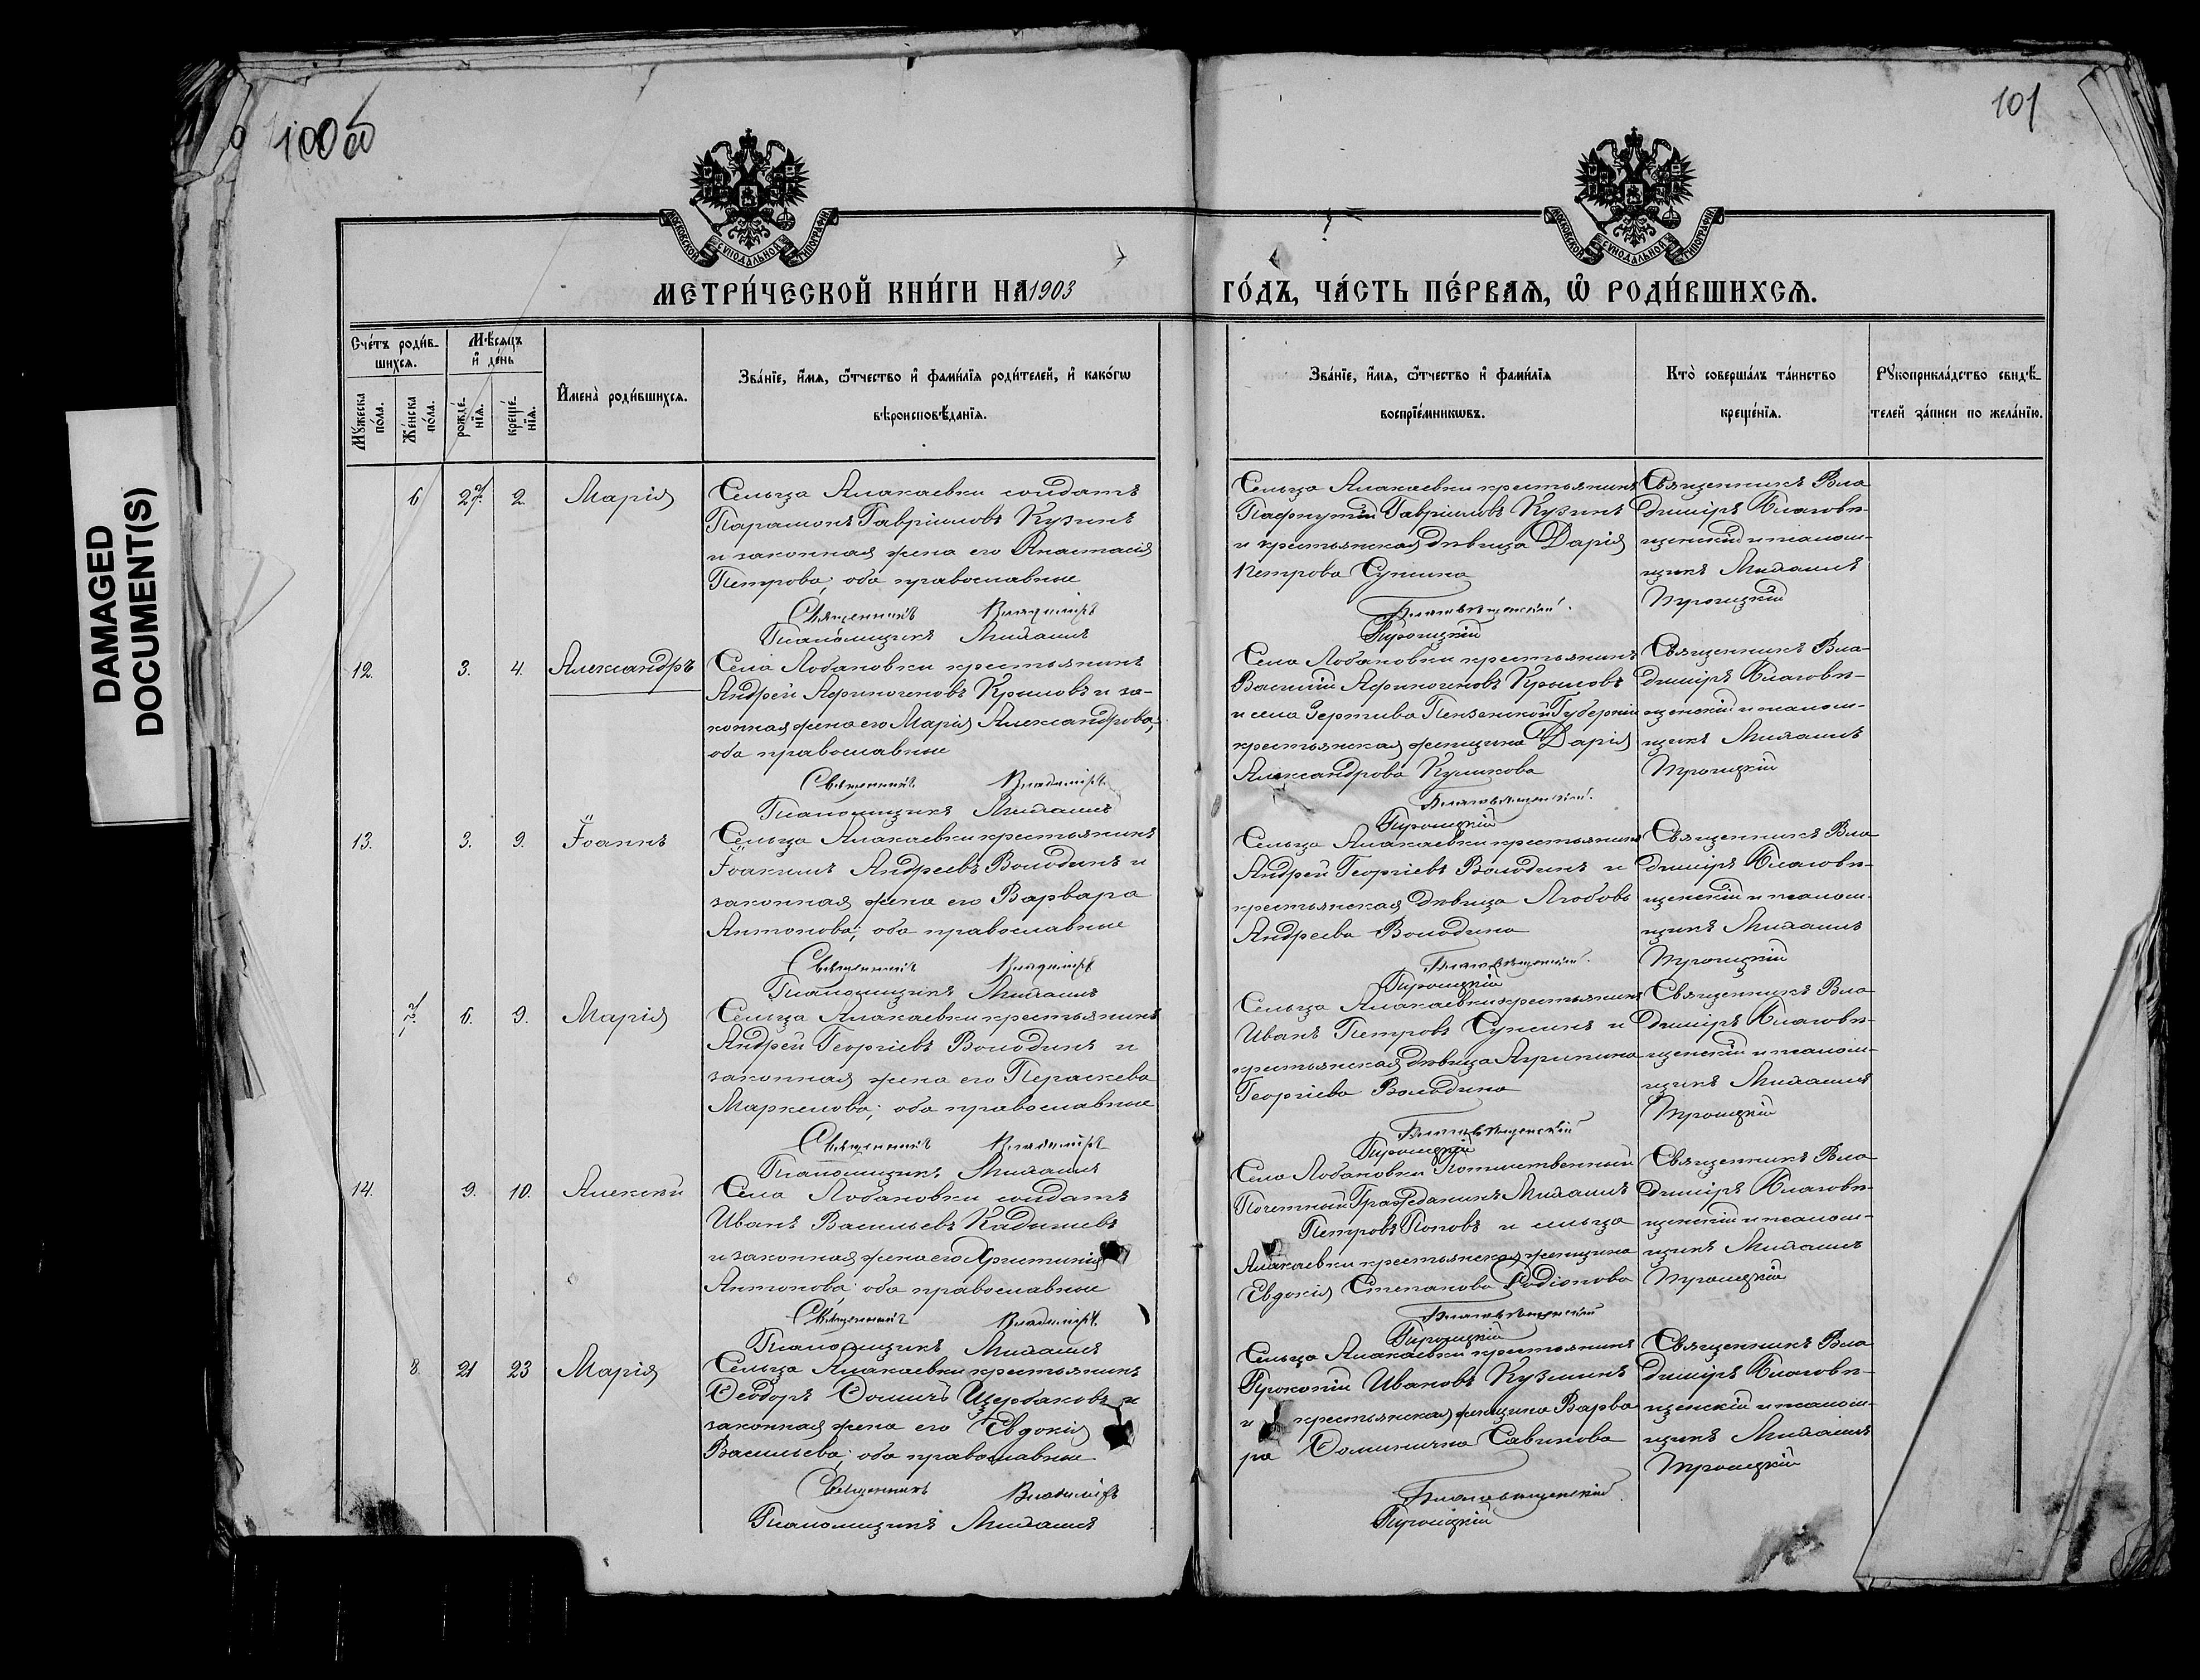 DAMAGED
DOCUMENT(S)
100об
101
МОСКОВСКОЙ СѴНОДАЛЬНОЙ ТИПОГРАФІИ
МОСКОВСКОЙ СѴНОДАЛЬНОЙ ТИПОГРАФІИ
МЕТРИ́ЧЕСКОЙ КНИ́ГИ НА 1903
ГО́ДЪ, ЧА́СТЬ ПЕ́РВАѦ, Ѽ РОДИ́ВШИХСѦ.
Сче́тъ роди́в-
шихсѧ.
Мꙋ́жеска
по́ла.
Же́нска
по́ла.
Мѣ́сѧцъ
и҆ де́нь
рожде́-
нїѧ.
креще́-
нїѧ.
И҆мена̀ роди́вшихсѧ.
Зва́нїе, и҆́мѧ, ѻ҆́тчество и҆ фами́лїѧ роди́телей, и҆ како́гѡ
вѣроисповѣ́данїѧ.
Зва́нїе, и҆́мѧ, ѻ҆́тчество и҆ фами́лїѧ
воспрїе́мникѡвъ.
Кто̀ соверша́лъ та́инство
креще́нїѧ.
Рꙋкоприкла́дство свидѣ́-
телей за́писи по жела́нїю.
6 27. 2. Марія
Сельца Алакаевки солдатъ
Парамонъ Гавріиловъ Кузинъ
и законная жена его Анастасія
Петрова; оба православные
Священникъ Владиміръ
Псаломщикъ Михаилъ
Сельца Алакаевки крестьянинъ
Пафнутій Гавріиловъ Кузинъ
и крестьянская дѣвица Дарія
Петрова Сукина
Благовѣщенскій.
Троицкій
Священникъ Вла
диміръ Благовѣ-
щенскій и псалом-
щикъ Михаилъ
Троицкій
12. 3. 4. Александръ
Села Лобановки крестьянинъ
Андрей Афиногеновъ Крыловъ и за-
конная жена его Марія Александрова,
оба православные
Священникъ Владиміръ
Псаломщикъ Михаилъ
Села Лобановки крестьянинъ
Василій Афиногеновъ Крыловъ
и села Пензенской Губерніи
крестьянская женщина Дарія
Александрова Куликова
Благовѣщенскій.
Троицкій
Священникъ Вла-
диміръ Благовѣ-
щенскій и псалом-
щикъ Михаилъ
Троицкій
13. 3. 9. Іоаннъ
Сельца Алакаевки крестьянинъ
Іоакимъ Андреевъ Володинъ и
законная жена его Варвара
Антонова; оба православные
Священникъ Владиміръ
Псаломщикъ Михаилъ
Сельца Алакаевки крестьянинъ
Андрей Георгіевъ Володинъ и
крестьянская дѣвица Любовь
Андреева Володина
Благовѣщенскій.
Троицкій
Священникъ Вла
диміръ Благовѣ-
щенскій и псалом-
щикъ Михаилъ
Троицкій
7. 6. 9. Марія
Сельца Алакаевки крестьянинъ
Андрей Георгіевъ Володинъ и
законная жена его Пераскева
Маркелова; оба православные
Священникъ Владиміръ
Псаломщикъ Михаилъ
Сельца Алакаевки крестьянинъ
Иванъ Петровъ Сукинъ и
крестьянская дѣвица Агрипина
Георгіева Володина
Благовѣщенскій
Троицкій
Священникъ Вла
диміръ Благовѣ-
щенскій и псалом-
щикъ Михаилъ
Троицкій
14. 9. 10. Алексѣй
Села Лобановки солдатъ
Иванъ Васильевъ Кадышевъ
и законная жена его Христинія
Антонова; оба православные
Священникъ Владиміръ
Псаломщикъ Михаилъ
Села Лобановки Потомственный
Почетный Гражданинъ Михаилъ
Петровъ Поповъ и сельца
Алакаевки крестьянская женщина
Евдокія Степанова Родіонова
Благовѣщенскій
Троицкій
Священникъ Вла
диміръ Благовѣ-
щенскій и псалом-
щикъ Михаилъ
Троицкій
8. 21 23 Марія
Сельца Алакаевки крестьянинъ
Ѳеодоръ Ѳомичъ Щербаковъ и
законная жена его Евдокія
Васильева; оба православные
Священникъ Владиміръ
Псаломщикъ Михаилъ
Сельца Алакаевки крестьянинъ
Прокопій Ивановъ Кузминъ
и крестьянская женщина Варва
ра Ѳоминична Савинова
Благовѣщенскій
Троицкій
Священникъ Вла
диміръ Благовѣ-
щенскій и псалом-
щикъ Михаилъ
Троицкій